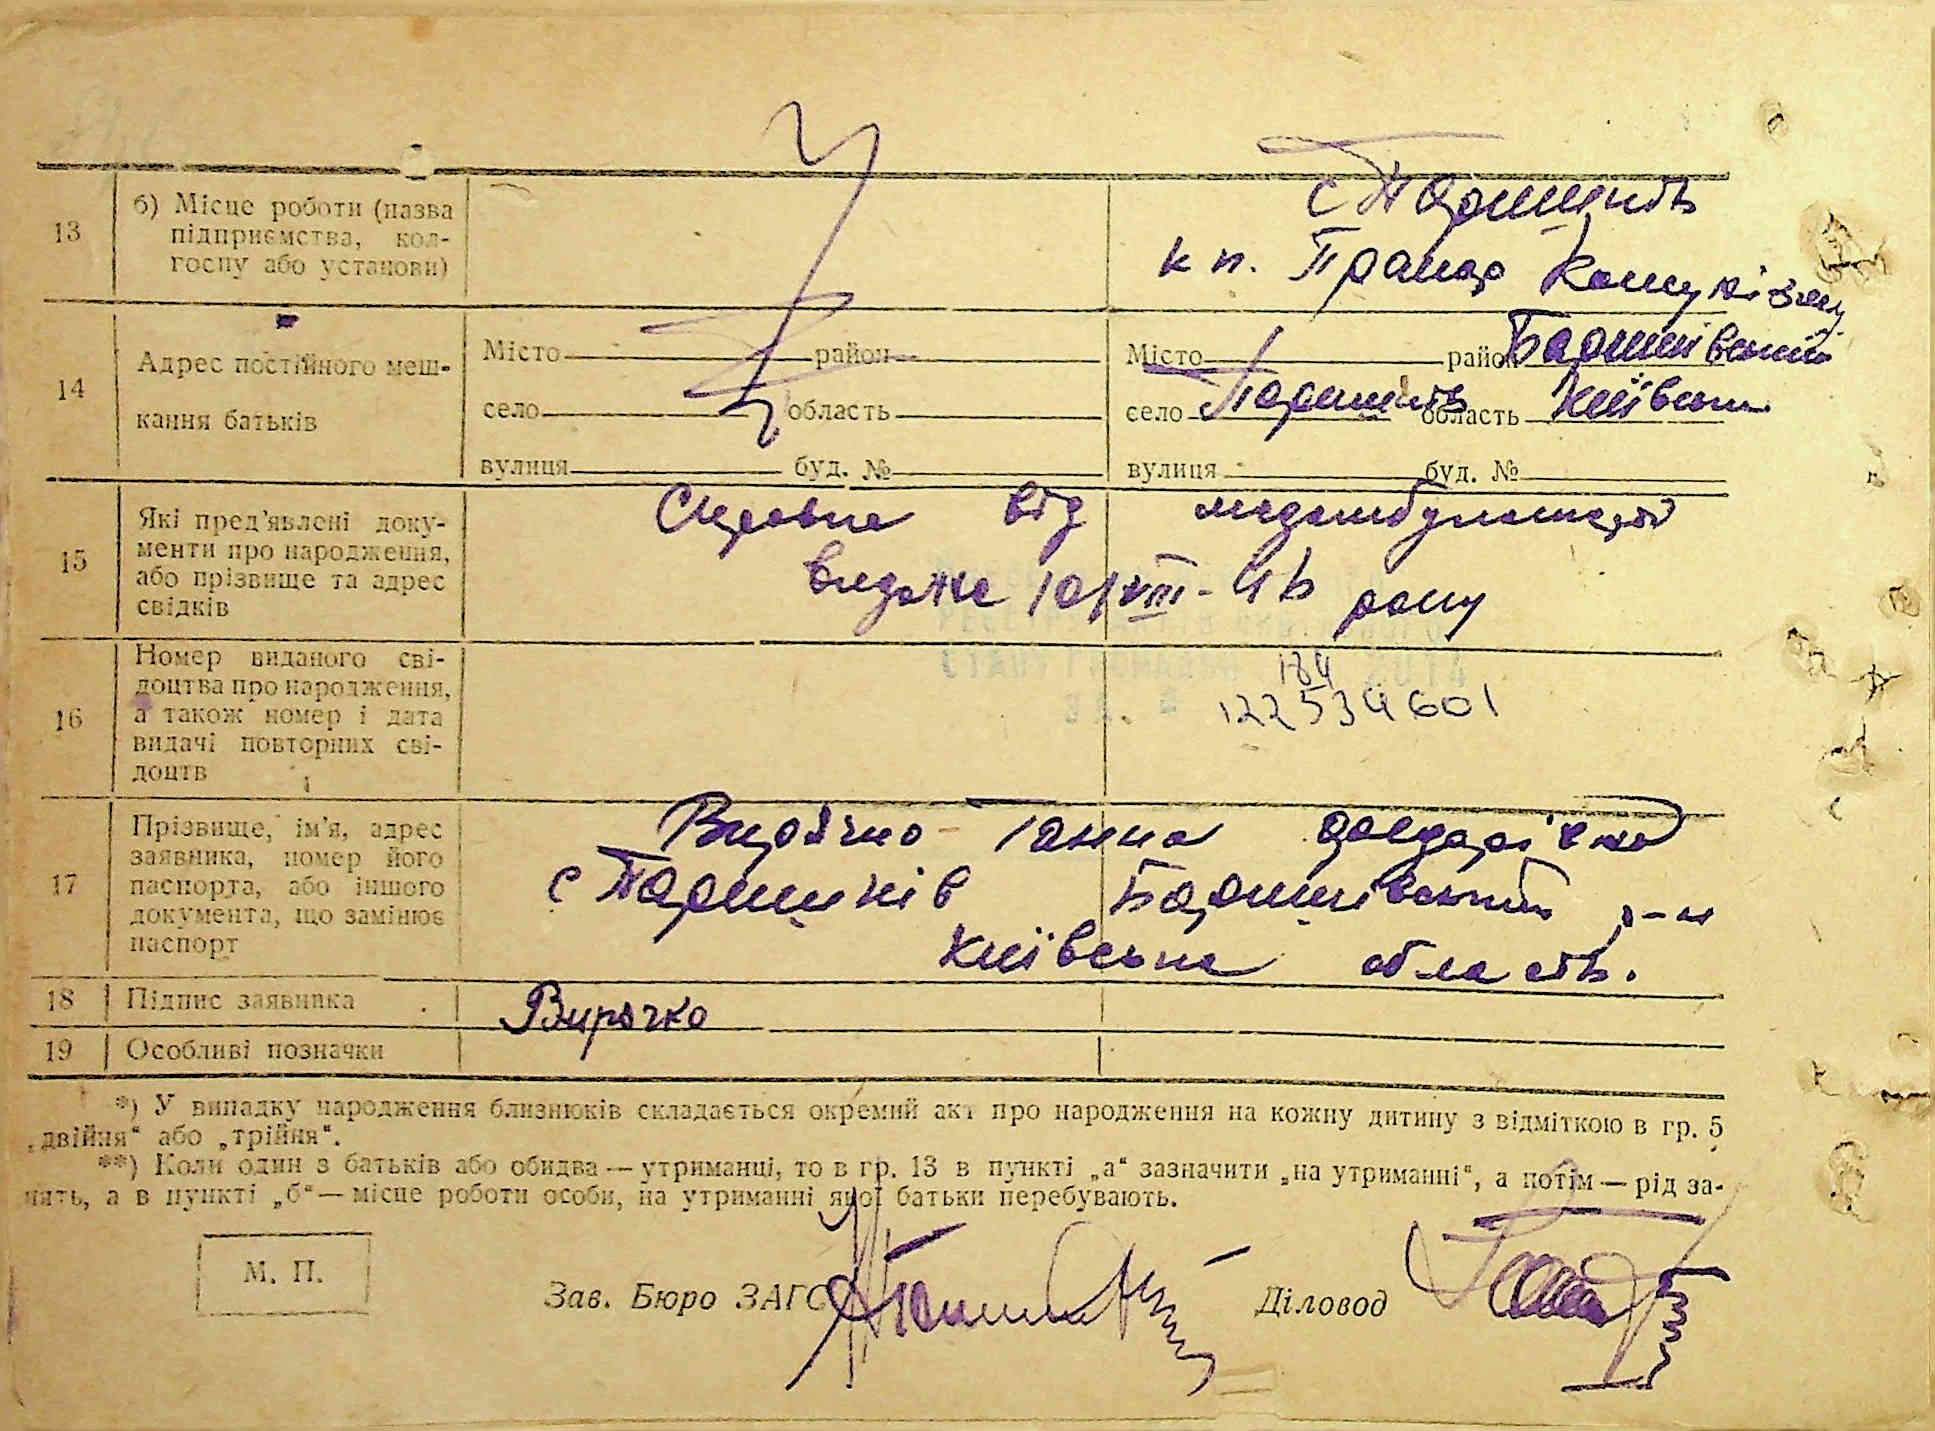 13
б) Місце роботи (назва
підприємства, кол-
госпу або установи)
с
к п. Праця
14
Адрес постійного меш-
кання батьків
Місто район
село область
вулиця буд. №
Місто район Баришівський
село Паришків область Київська
вулиця буд. №
15
Які пред'явлені доку-
менти про народження,
або прізвище та адрес
свідків
Справка від медамбулаторії
видана 10/VIII- року
16
Номер виданого сві-
доцтва про народження,
а також номер і дата
видачі повторних сві-
доцтв
184
122534601
17
Прізвище, ім'я, адрес
заявника, номер його
паспорта, або іншого
документа, що замінює
паспорт
Ганна
с Паришків Баришівський р-н
Київська область.
18
Підпис заявника
Вирочко
19
Особливі позначки
*) У випадку народження близнюків складається окремий акт про народження на кожну дитину з відміткою в гр. 5
„двійня“ або „трійня“.
**) Коли один з батьків або обидва — утриманці, то в гр. 13 в пункті „а“ зазначити „на утриманні“, а потім — рід за-
нять, а в пункті „б“ — місце роботи особи, на утриманні якої батьки перебувають.
М. П.
Зав. Бюро ЗАГС
Діловод